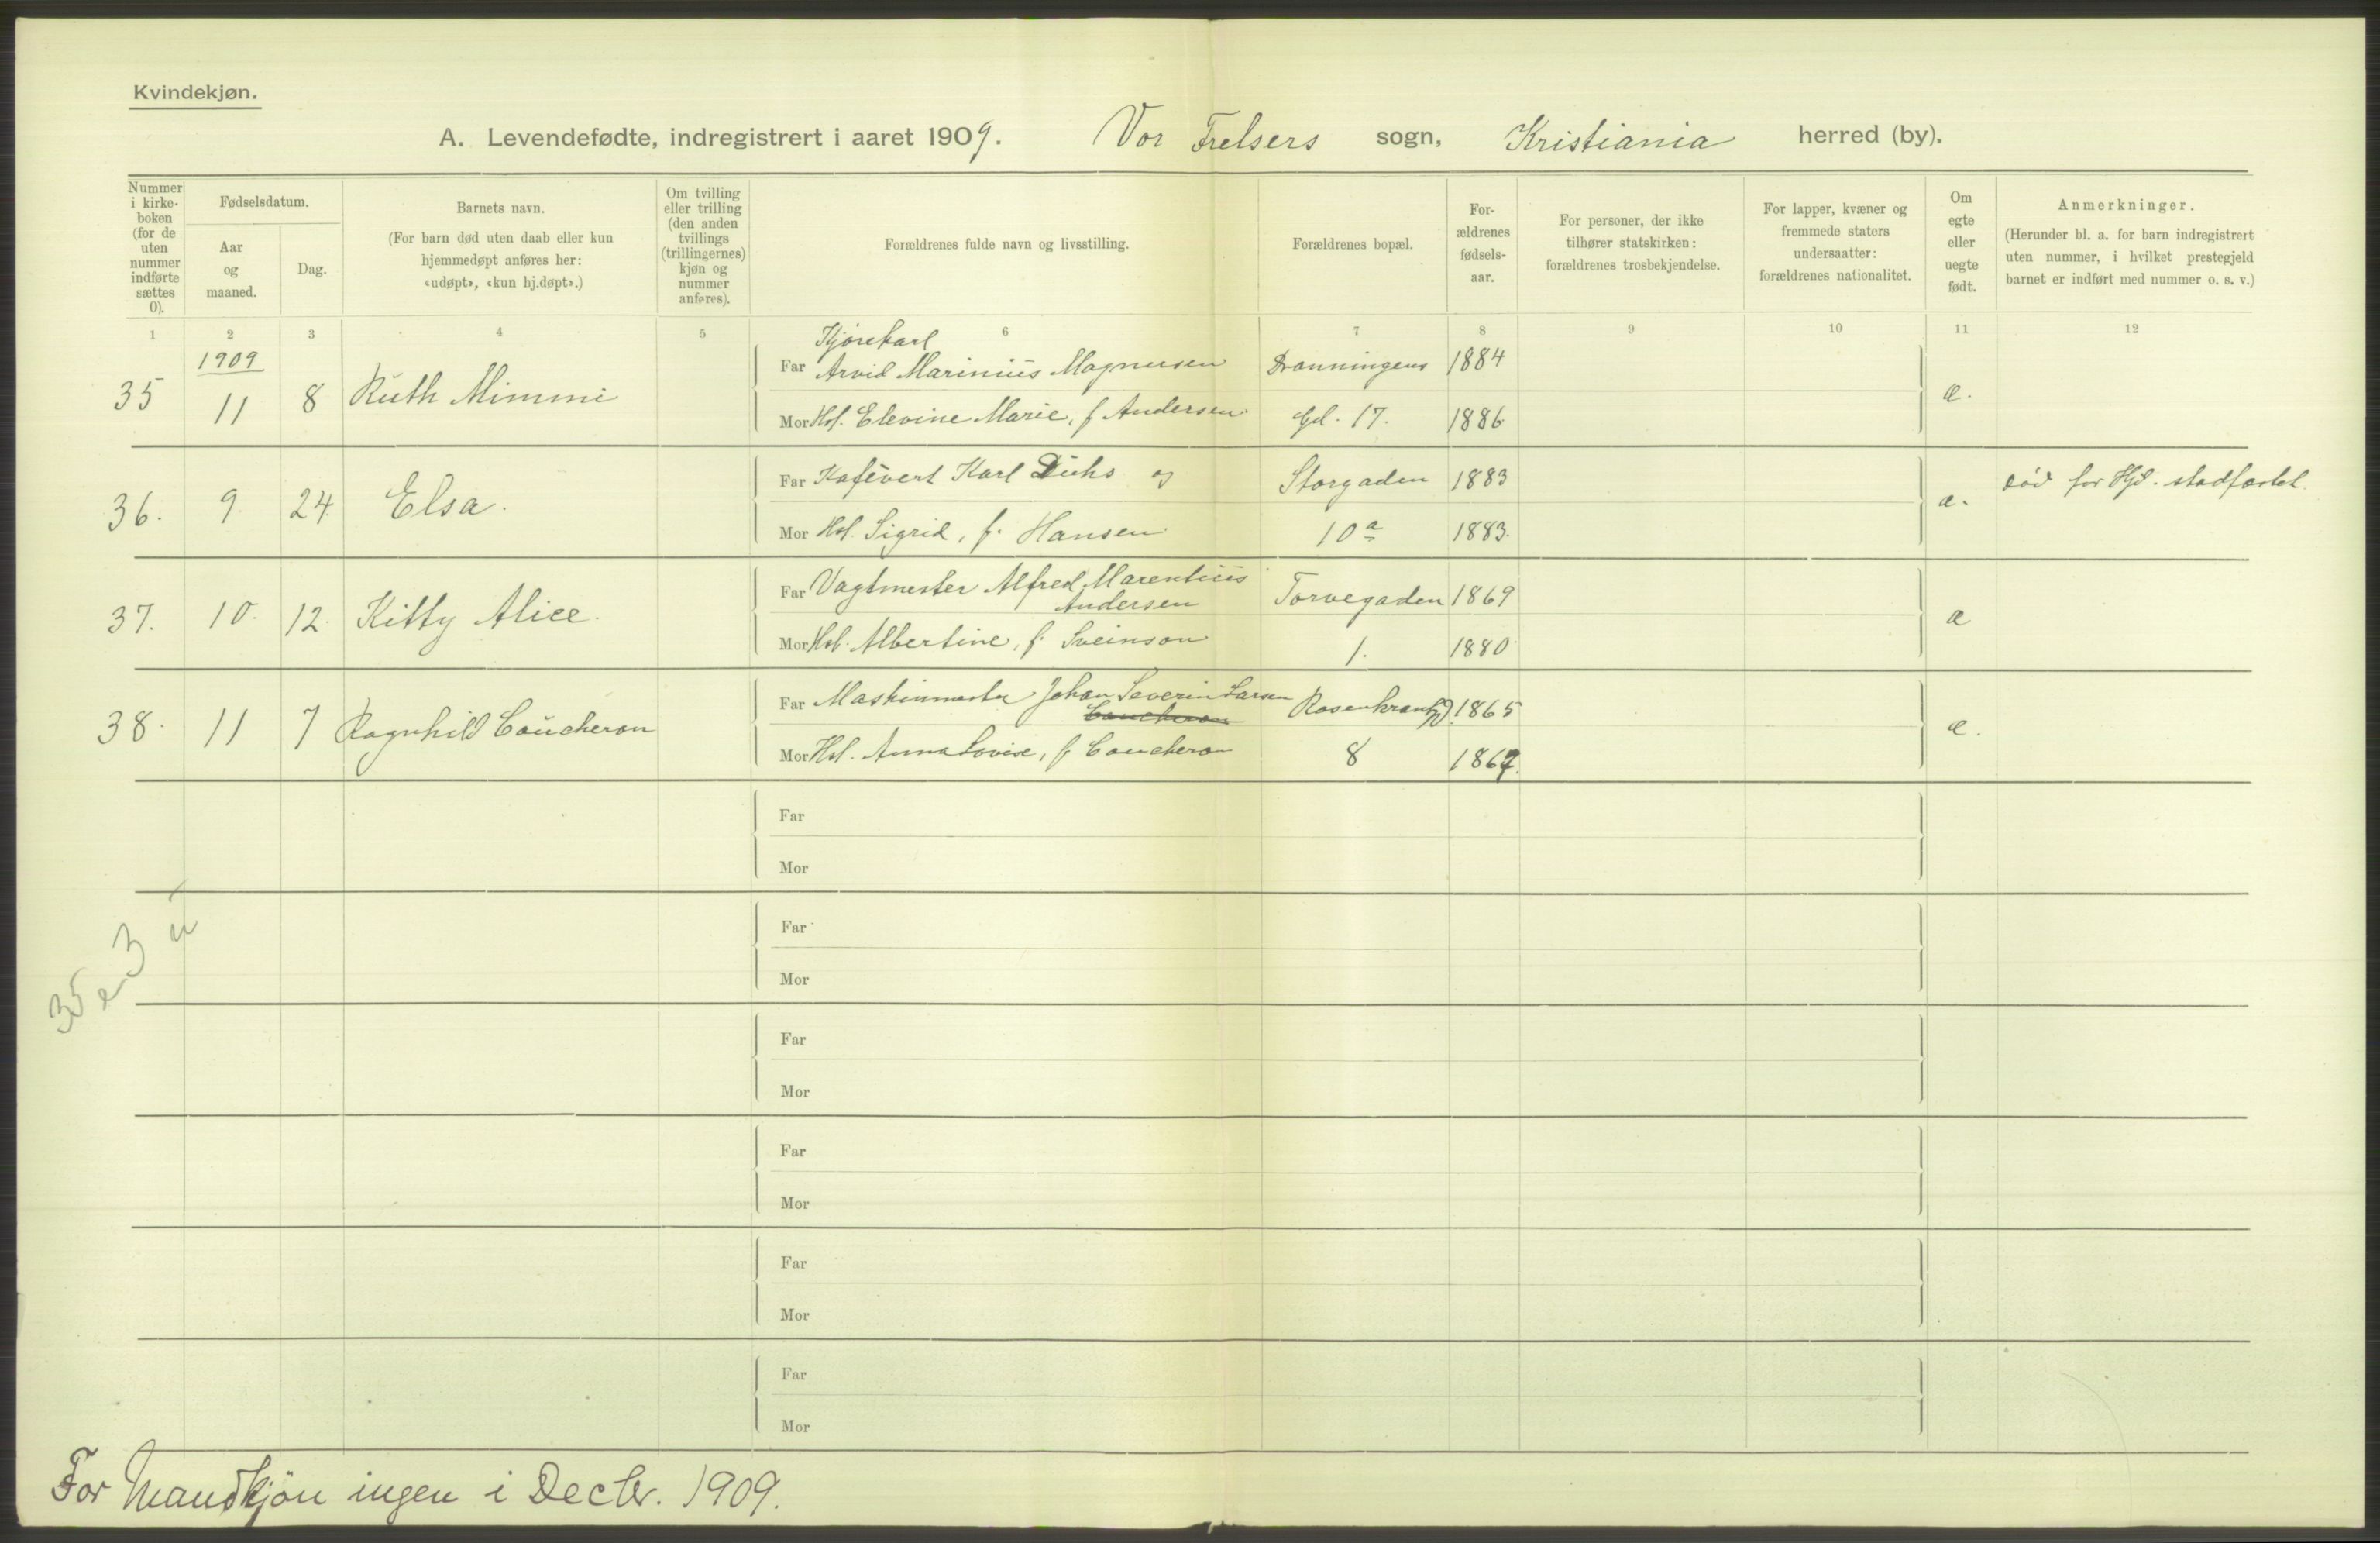 Kvindekjøn.
A. Levendefødte, indregistrert i aaret 1909. Vor Frelsers sogn, Kristiania herred (by).
Nummer i kirke-boken (for de uten nummer indførte sættes 0).
Fødselsdatum.
Aar og maaned.
Dag.
Barnets navn.
(For barn død uten daab eller kun hjemmedøpt anføres her: «udøpt», «kun hj.døpt».)
Om tvilling eller trilling (den anden tvillings (trillingernes) kjøn og nummer anføres).
Forældrenes fulde navn og livsstilling.
Forældrenes bopæl.
For-ældrenes fødsels-aar.
For personer, der ikke tilhører statskirken: forældrenes trosbekjendelse.
For lapper, kvæner og fremmede staters undersaatter: forældrenes nationalitet.
Om egte eller uegte født.
Anmerkninger.
(Herunder bl. a. for barn indregistrert uten nummer, i hvilket prestegjeld barnet er indført med nummer o. s. v.)
1 2 3 4 5 6 7 8 9 10 11 12
1909
Kjørekarl
35 11 8 Ruth Mimmi Far Arvid Marinius Magnusen Dronningens 1884 e.
Mor Hst. Elevine Marie, f Andersen Gd. 17. 1886
36. 9. 24 Elsa. Far Kafévert Karl Duhs og Storgaden 1883 e. død for Hjd. stadfæstet.
Mor Hst. Sigrid, f. Hansen 10a 1883.
37. 10. 12. Kitty Alice. Far Vagtmester Alfred Marentius Torvegaden 1869 e
Andersen
Mor Hst. Albertine, f. Sveinson 1. 1880.
38. 11 7 Ragnhild Coucheron Far Maskinmester Johan Severin Larsen Rosenkrantzgd. 1865 e.
Coucheron
Mor Hst. Anna Lovise, f. Coucheron 8
Far
Mor
Far
Mor
Far
Mor
Far
Mor
Far
Mor
Far
Mor
35 e 3 u
For Mandkjøn ingen i Decbr. 1909.